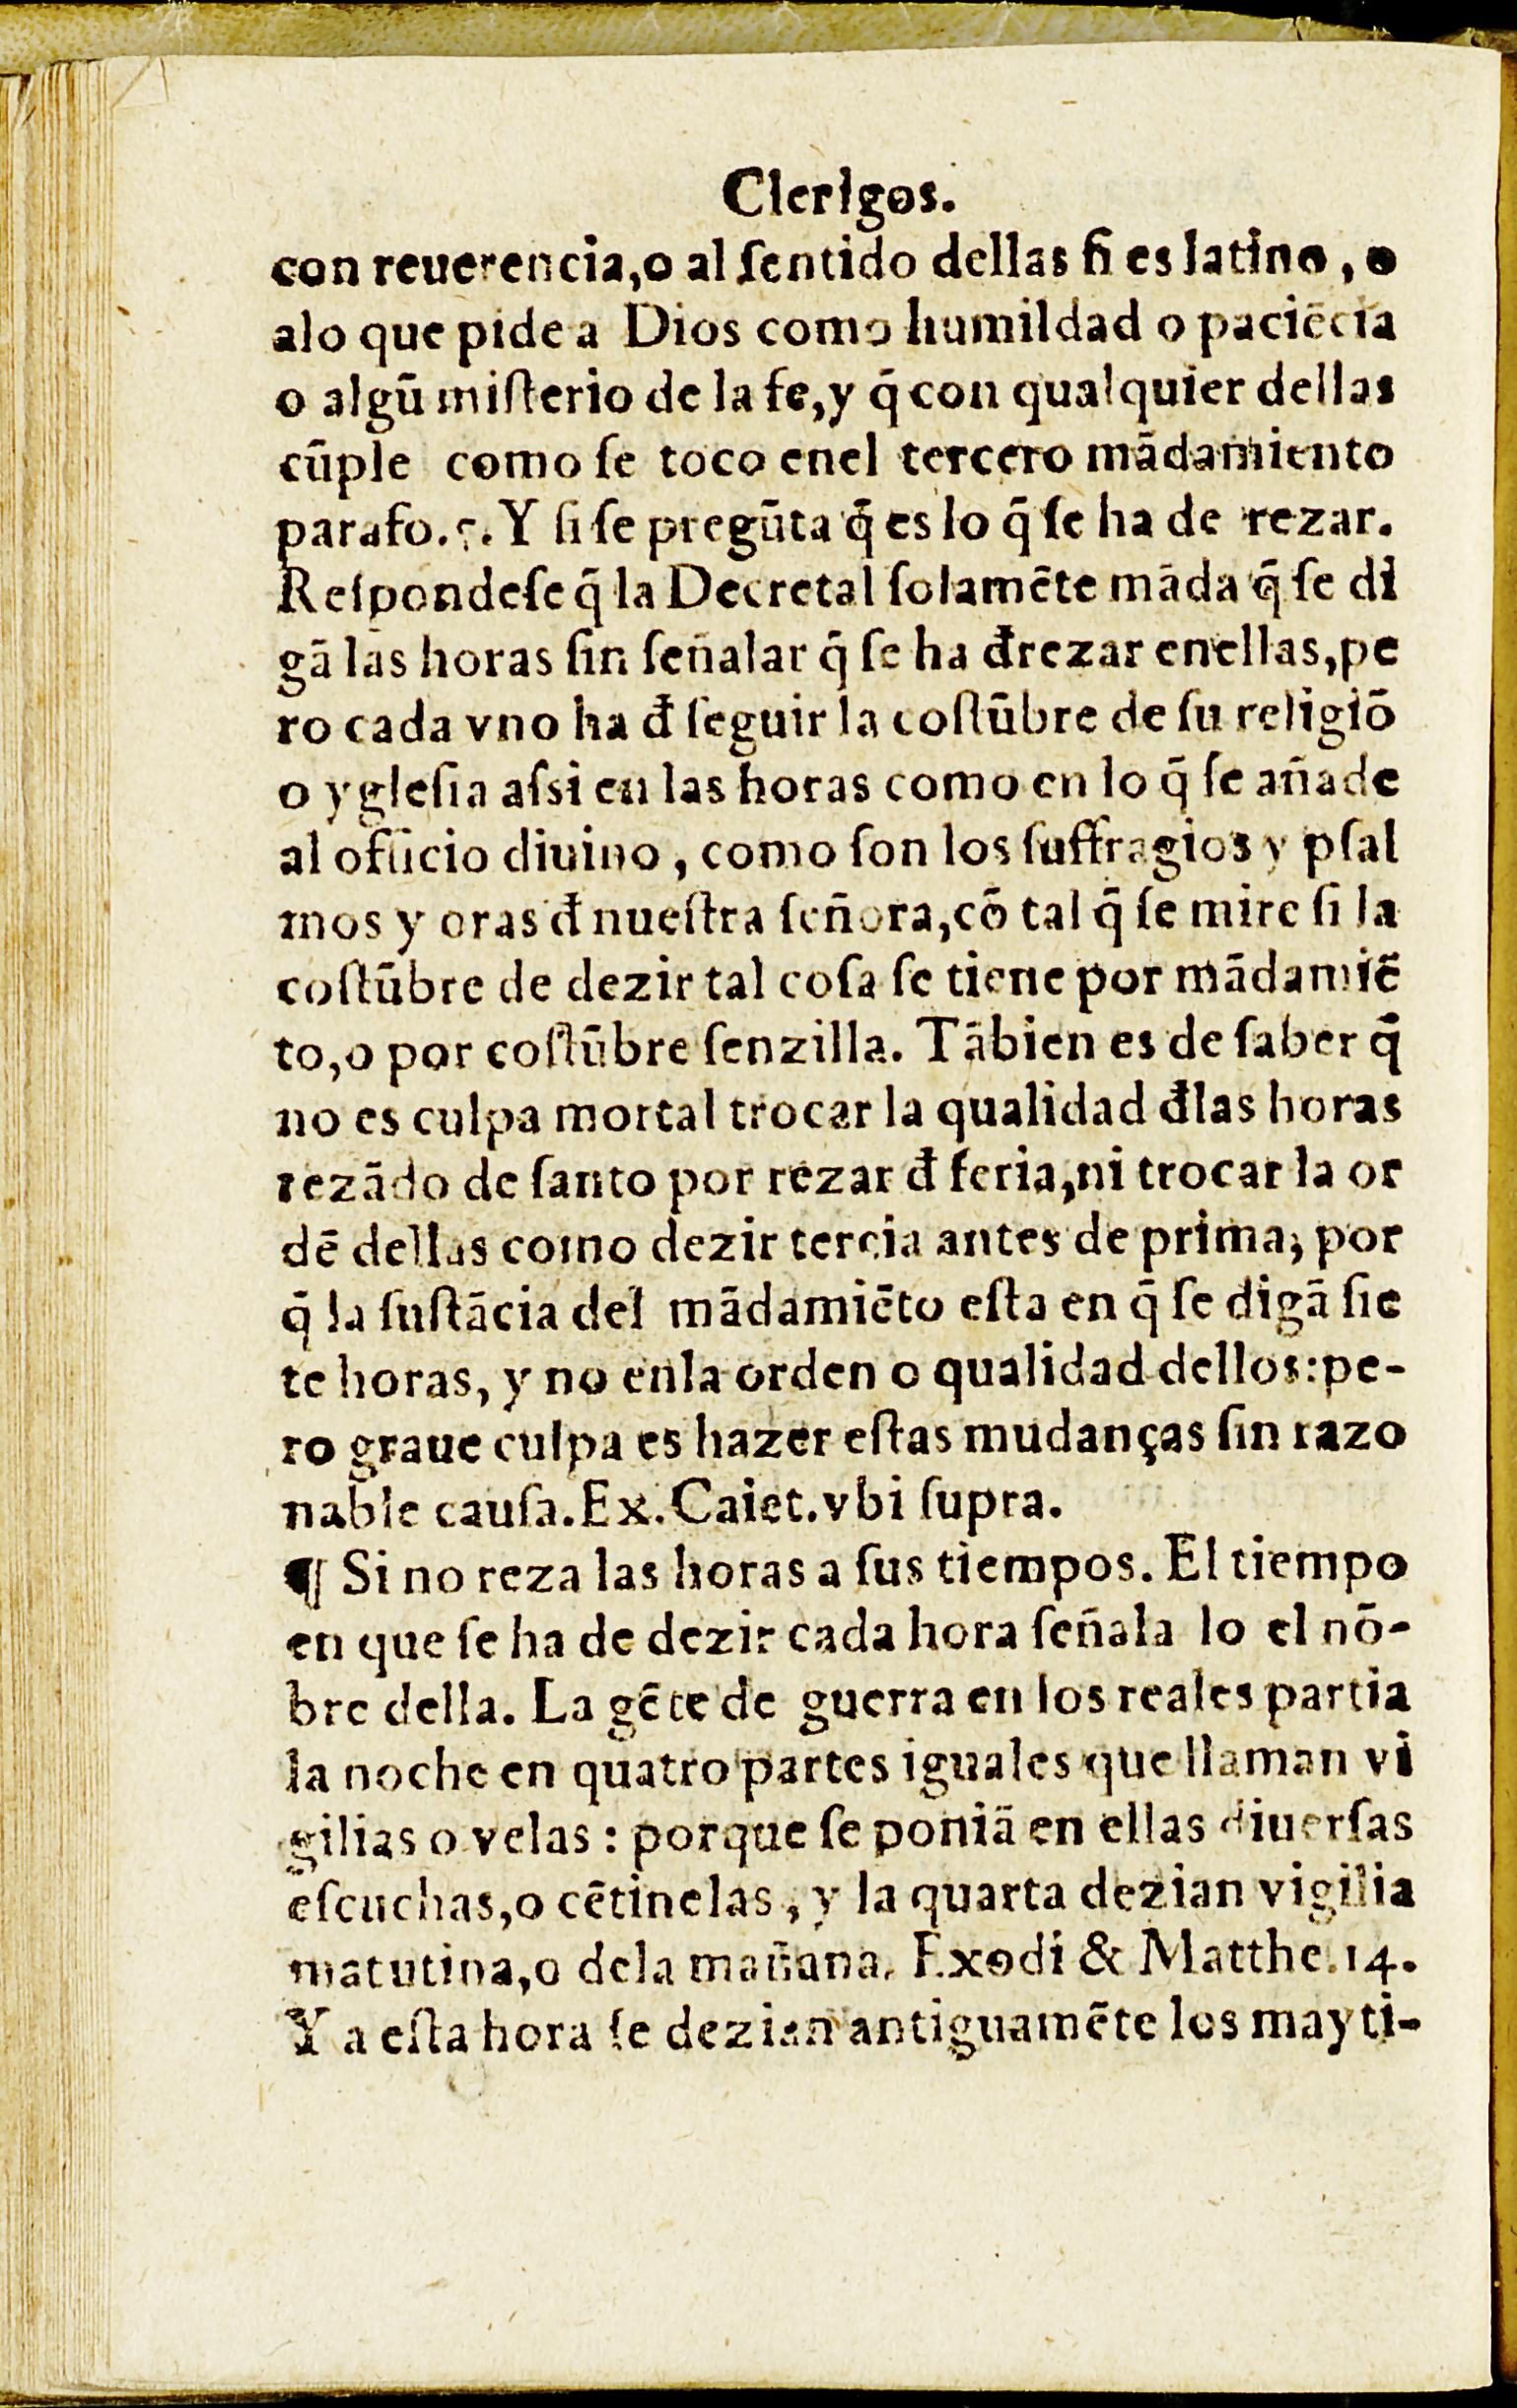 Clerigos.
con reuerencia,o al ſentido dellas ſi es latino, o
alo que pide a Dios como humildad o paciẽcia
o algũ miſterio de la fe,y q̃ con qualquier dellas
cũple como ſe toco enel tercero mãdamiento
parafo.5. Y ſi ſe pregũta q̃ es lo q̃ ſe ha de rezar.
Reſpondeſe q̃ la Decretal ſolamẽte mãda q̃ ſe di
gã las horas ſin ſeñalar q̃ ſe ha đrezar enellas,pe
ro cada vno ha đ ſeguir la coſtũbre de ſu religiõ
o ygleſia aſsi en las horas como en lo q̃ ſe añade
al officio diuino, como ſon los ſuffragios y pſal
mos y oras đ nueſtra ſeñora,cõ tal q̃ ſe mire ſi la
coſtũbre de dezir tal coſa ſe tiene por mãdamiẽ
to,o por coſtũbre ſenzilla. Tãbien es de ſaber q̃
no es culpa mortal trocar la qualidad đlas horas
rezãdo de ſanto por rezar đ feria,ni trocar la or
dẽ dellas como dezir tercia antes de prima, por
q̃ la ſuſtãcia del mãdamiẽto eſta en q̃ ſe digã ſie
te horas, y no enla orden o qualidad dellos:pe-
ro graue culpa es hazer eſtas mudanças ſin razo
nable cauſa.Ex. Caiet.vbi ſupra.
¶ Si no reza las horas a ſus tiempos. El tiempo
en que ſe ha de dezir cada hora ſeñala lo el nõ-
bre della. La gẽte de guerra en los reales partia
la noche en quatro partes iguales que llaman vi
gilias o velas : porque ſe poniã en ellas diuerſas
eſcuchas,o cẽtinelas, y la quarta dezian vigilia
matutina,o dela mañana. Exodi & Matthe.14.
Y a eſta hora ſe dezian antiguamẽte los mayti-